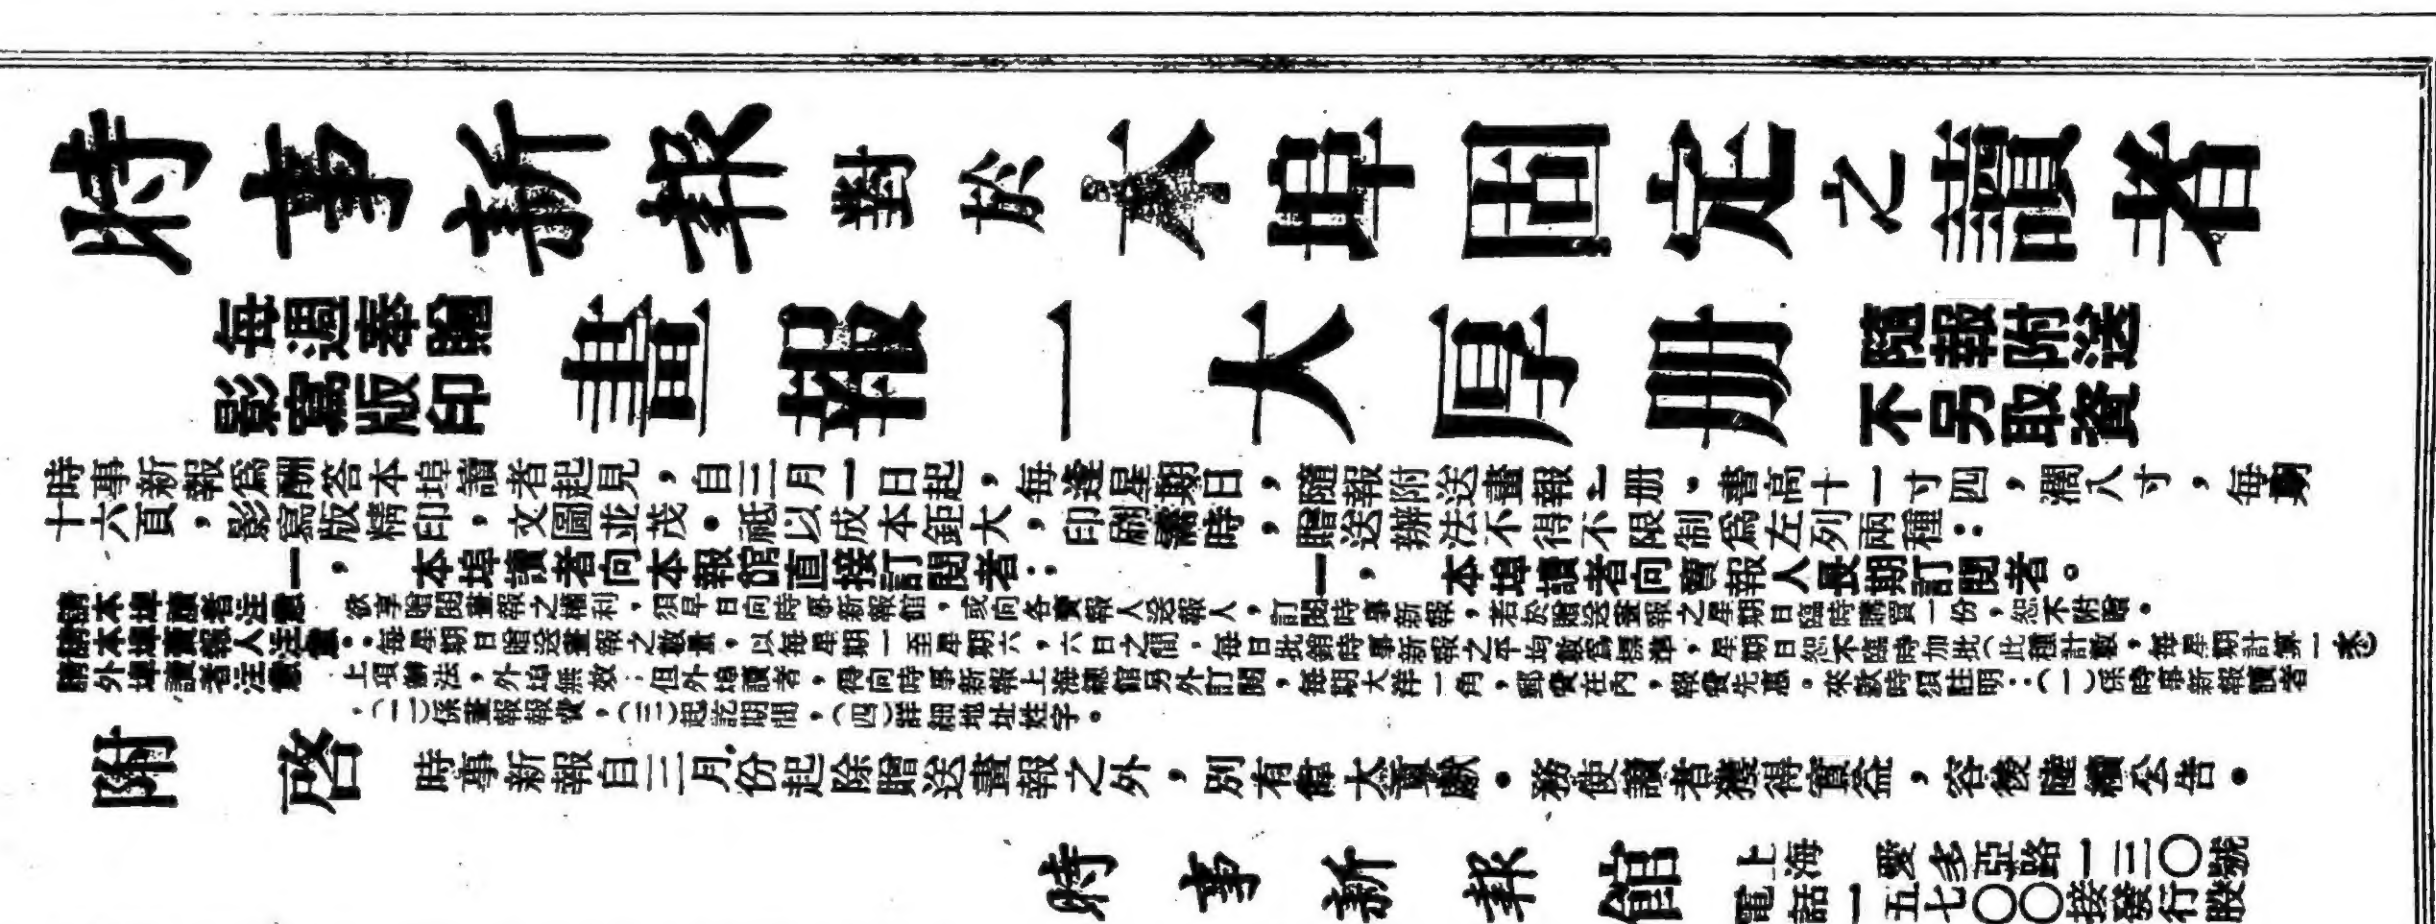 時事新報對於本埠固定之讀者
每週奉贈
影寫版印
畫報一大厚冊
隨報附送
不另取資
時事新報爲酬答本埠讀者起見，自三月一日起，每逢星期日，隨報附送畫報一册。書高十一寸四，濶八寸，每期
十六頁，影寫版精印，文圖並茂。祗以成本鉅大，印刷需時，贈送辦法不得不限制爲左列兩種：
一，本埠讀者向本報館直接訂閱者： 一，本埠讀者向賣報人長期訂閱者。
請本埠讀者注意 欲享贈閱畫報之權利，須早日向時事新報館，或向各賣報人送報人，訂閱時事新報，若於贈送畫報之星期日臨時購買一份，恕不附贈。
請本埠賣報人注意：每星期日贈送畫報之數量，以每星期一至星期六，六日之間，每日批銷時事新報之平均數爲標準，星期日恕不臨時加批（此種計數，每星期計算一次）
請外埠讀者注意 上項辦法，外埠無效；但外埠讀者，得向時事新報上海總館另外訂閱，每期大洋一角，郵費在內，報費先惠。來款時須註明：（一）係時事新報讀者
，（二）係畫報報費，（三）起訖期間，（四）詳細地址姓字。
附啓 時事新報自三月份起除贈送畫報之外，別有偉大貢獻。務使讀者獲得實益，容後陸續公告。
時事新報館
上海 愛多亞路一三〇號
電話一五七〇〇接發行股